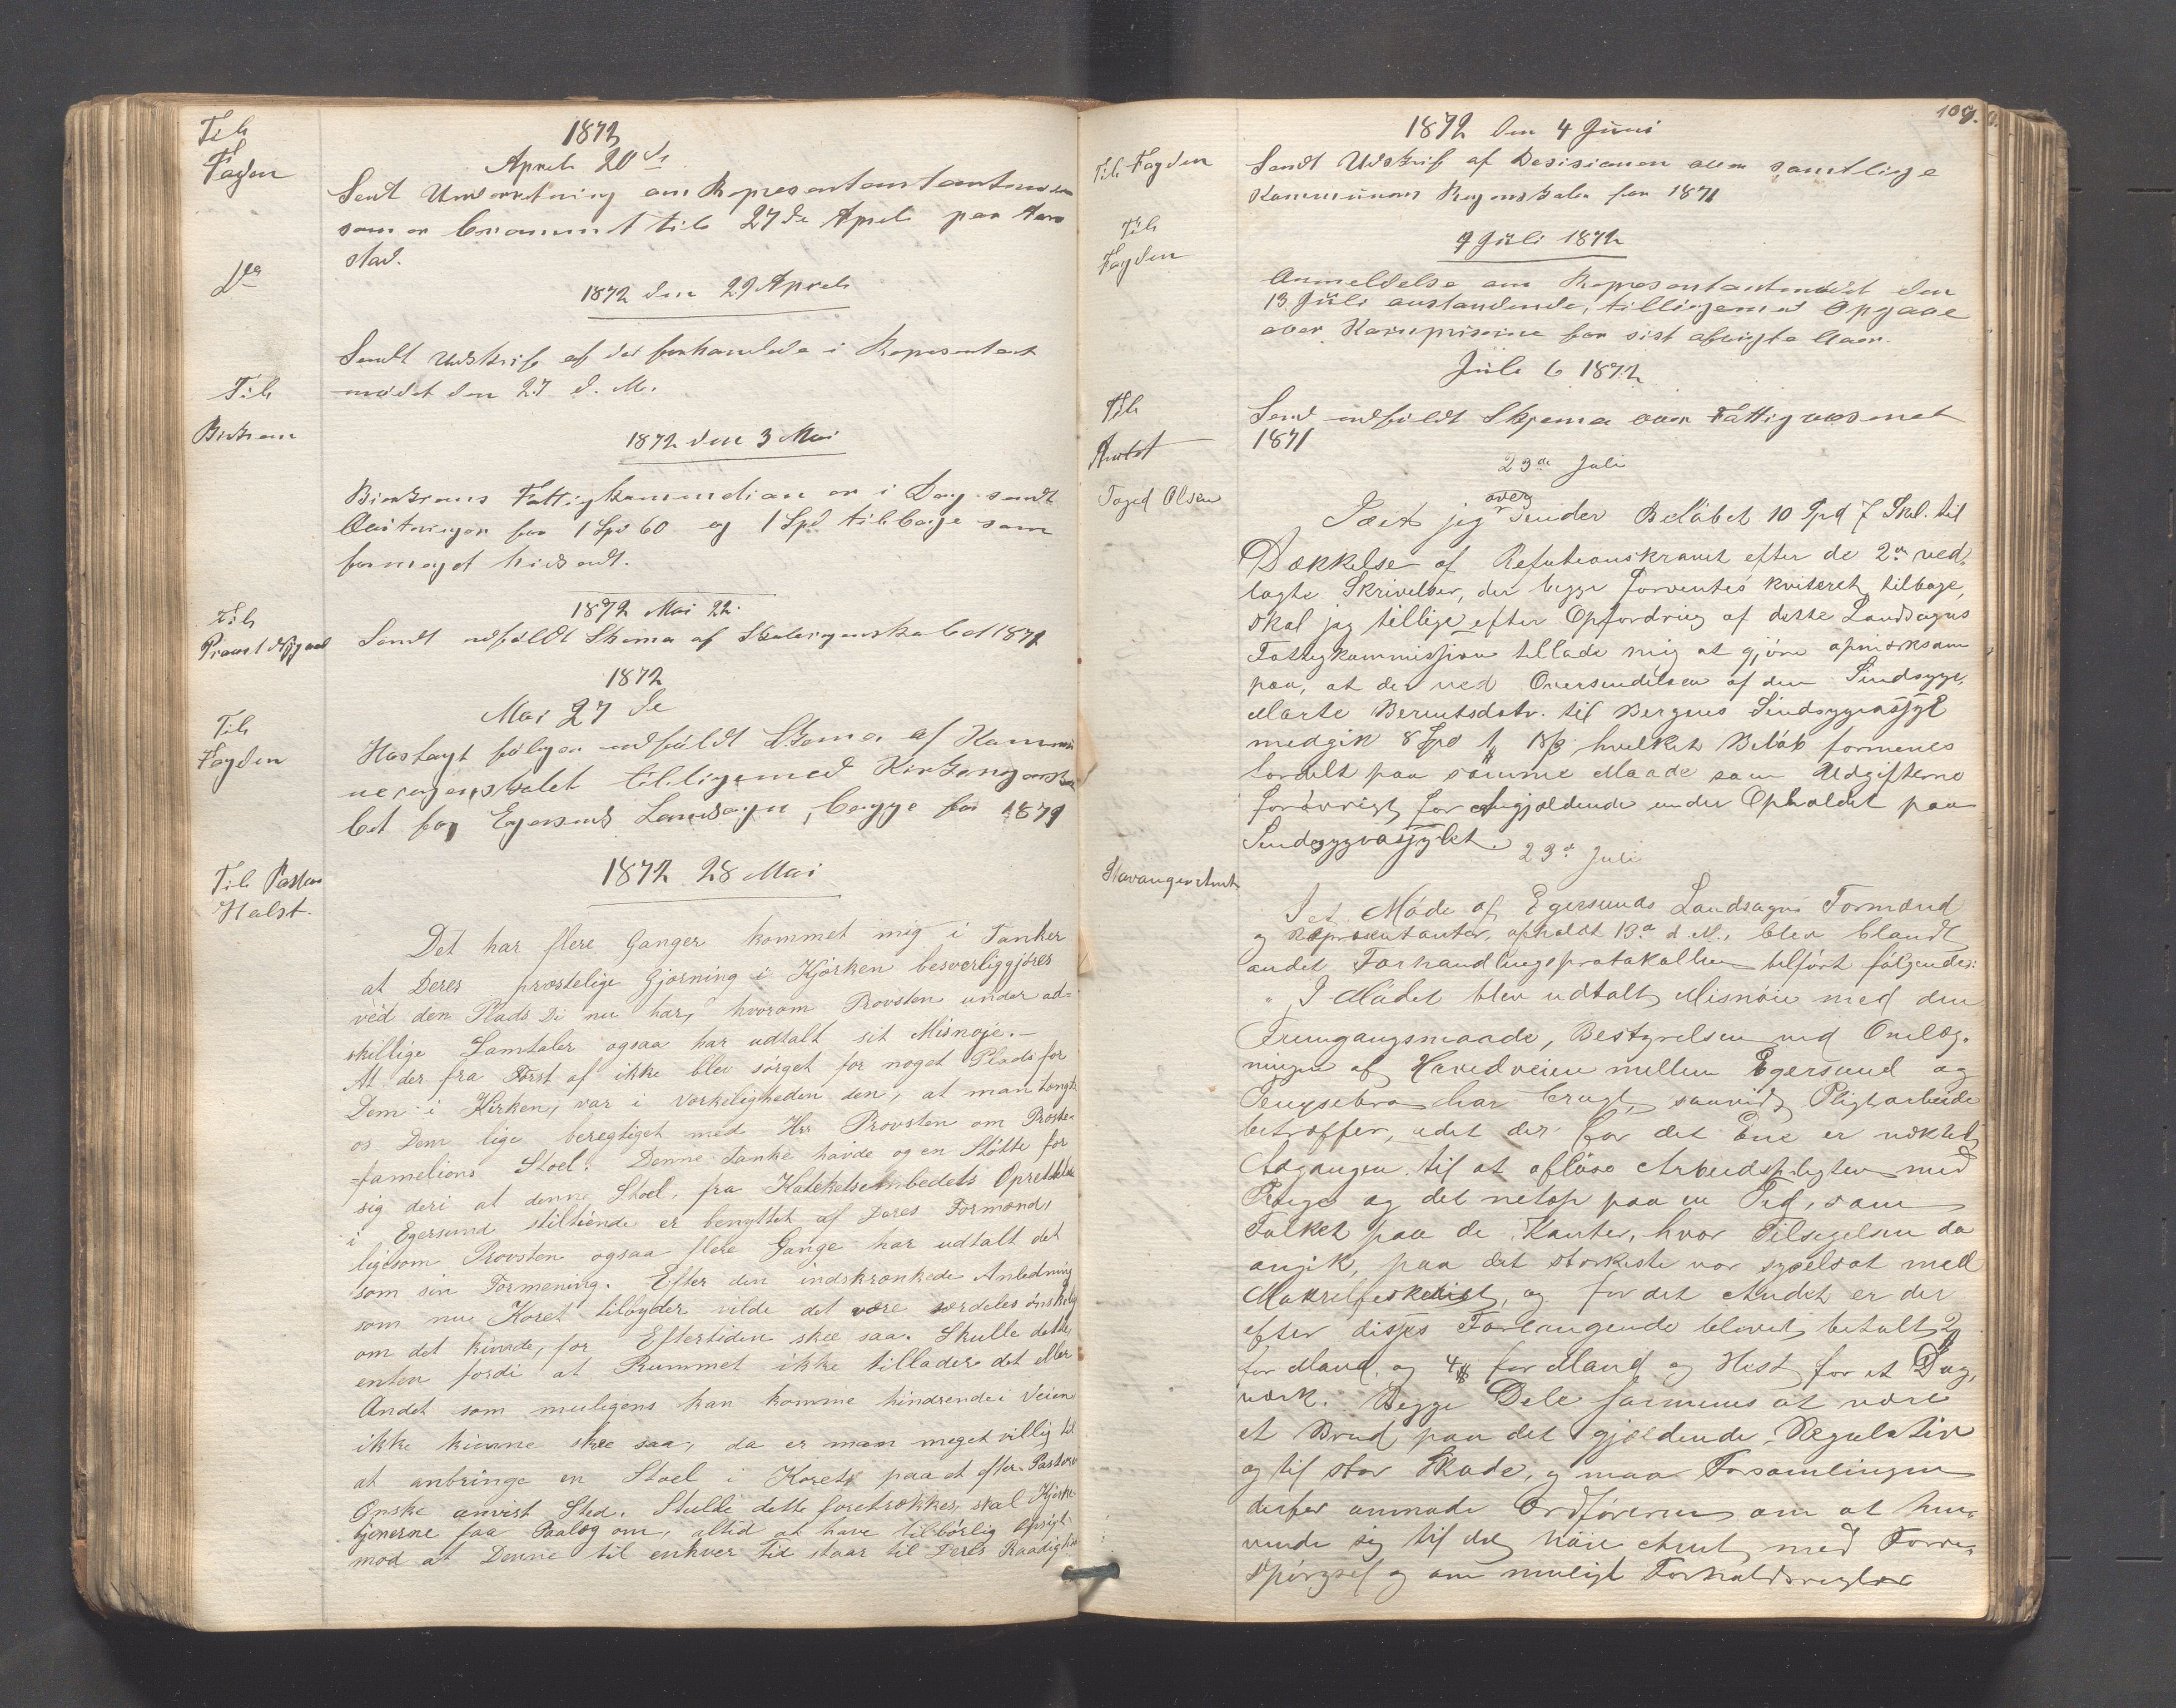 Til
Fogden
1872
April 20de
Sent Underretning om Representantmøde
som er berammet til 27de April paa Aar
stad.
Do
1872 den 29 April
Sendt Udskrift af det forhandlede i Representant
mødet den 27 d. M.
Til
1872 den 3 Mai
Fattigkommission er i Dag sendt
for 1 Spd 60 og 1 Spd tilbage som
formeget hidsendt.
Til
Provst
1872 Mai 22.
Sendt udfyldt Skema af Skoleregnskabet 1871
1872
Mai 27de
Til
Fogden
Hoslagt følger udfyldt Skema af Kommu
neregnskabet tilligemed Kirkeregnska
bet for Egersunds Landsogn, begge for 1871
1872 28 Mai
Til Pastor
Halst.
Det har flere Ganger kommet mig i Tanker
at Deres præstelige Gjerning i Kjørken besverliggjøres
ved den Plads Di nu har, hvorom Provsten under ad=
skillige Samtaler ogsaa har udtalt sit Misnøje.—
At der fra Først af ikke blev sørget for noget Plads for
Dem i Kirken, var i Verkeligheden den, at man tengte
os Dem lige beregtiget med Hrr Provsten om Præste=
famelions Stoel. Denne Tanke havde og en Støtte for
sig deri at denne Stoel, fra Katekets Embedets Oprettelse
i Egersund stiltiende er benyttet af Deres Formænd,
ligesom Provsten ogsaa flere Gange har udtalt det
som sin Formening. Efter den indskrenkede Anledning
som nu Koret tilbyder vilde det være særdeles ønskelig
om det kunde, for Eftertiden skee saa. Skulle dette,
enten fordi at Rummet ikke tillader det eller
Andet som muligens kan komme hindrende i Veien
ikke kunne skee saa, da er man meget villig til
at anbringe en Stoel i Koret paa et efter Pastorens
Ønske anvist Sted. Skulde dette foretrækkes, skal Kjørke
tjenerne faa Paalæg om, altid at have tilbørlig Opsigt
med at Denne til enhver Tid staar til Deres Raadighed
109.
1872 den 4 Juni
Til Fogden
Sendt Udskrift af Desisionen over samtlige
Kommunens Regnskaber for 1871
Til
Fogden
7 Juli 1872
Anmeldelse om Representantmødet den
13 Juli anstaaende, tilligemed Opgave
over Kornprisene for sist afvigte Aar.
Juli 6 1872
Til
Amtet
Send udfyldt Skjema over Fattigvæsenet
1871
23de Juli
Foged Olsen
Idet jeg oversender Beløbet 10 Spd 7 Skl. til
Dækkelse af Refutionskravet efter de 2de ved=
lagte Skrivelser, der begge forventes kviteret tilbage,
skal jeg tillige efter Opfordring af dette Landsogns
Fattigkommission tillade mig at gjøre opmærksom
paa, at der ved Oversendelsen af den Sindsyge
Marte Berentsdatr. til Bergens Sindsygeasyl
medgik 8 Spd 1 18β hvilket Beløb formenes
fordelt paa samme Maade som Udgifterne
forøvrigt for Angjældende under Opholdet paa
Sindsygeasylet.
23de Juli
Stavanger Amt
I et Møde af Egersunds Landsogns Formænd
og Representanter, afholdt 13de d. M., blev blandt
andet Forhandlingsprotokollen tilført følgende:
„ I Mødet blev udtalt Misnøie med den
Fremgangsmaade, Bestyrelsen ved Omlæg=
ningen af Hovedveien mellem Egersund og
har brugt, saavidt Pligtarbeide
betræffer, idet der for det Ene er nektet
Adgangen til at afløse Arbeidspligten med
Penge og det netop paa en Tid, som
Folket paa de Kanter, hvor Tilsigelsen da
angik, paa det sterkeste var sysselsat med
Makrelfiskeriet, og for det Andet er der
efter disses Forlangende blevet betalt 2
for Mand og 4 for Mand og Hest for et Dag=
værk. Begge Dele formenes at være
et Brud paa det gjældende Regulativ
og til stor Skade, og maa Forsamlingen
derfor anmode Ordføreren om at hen=
vende sig til det høie Amt med Fore=
spørgsel og om muligt Forholdsregler